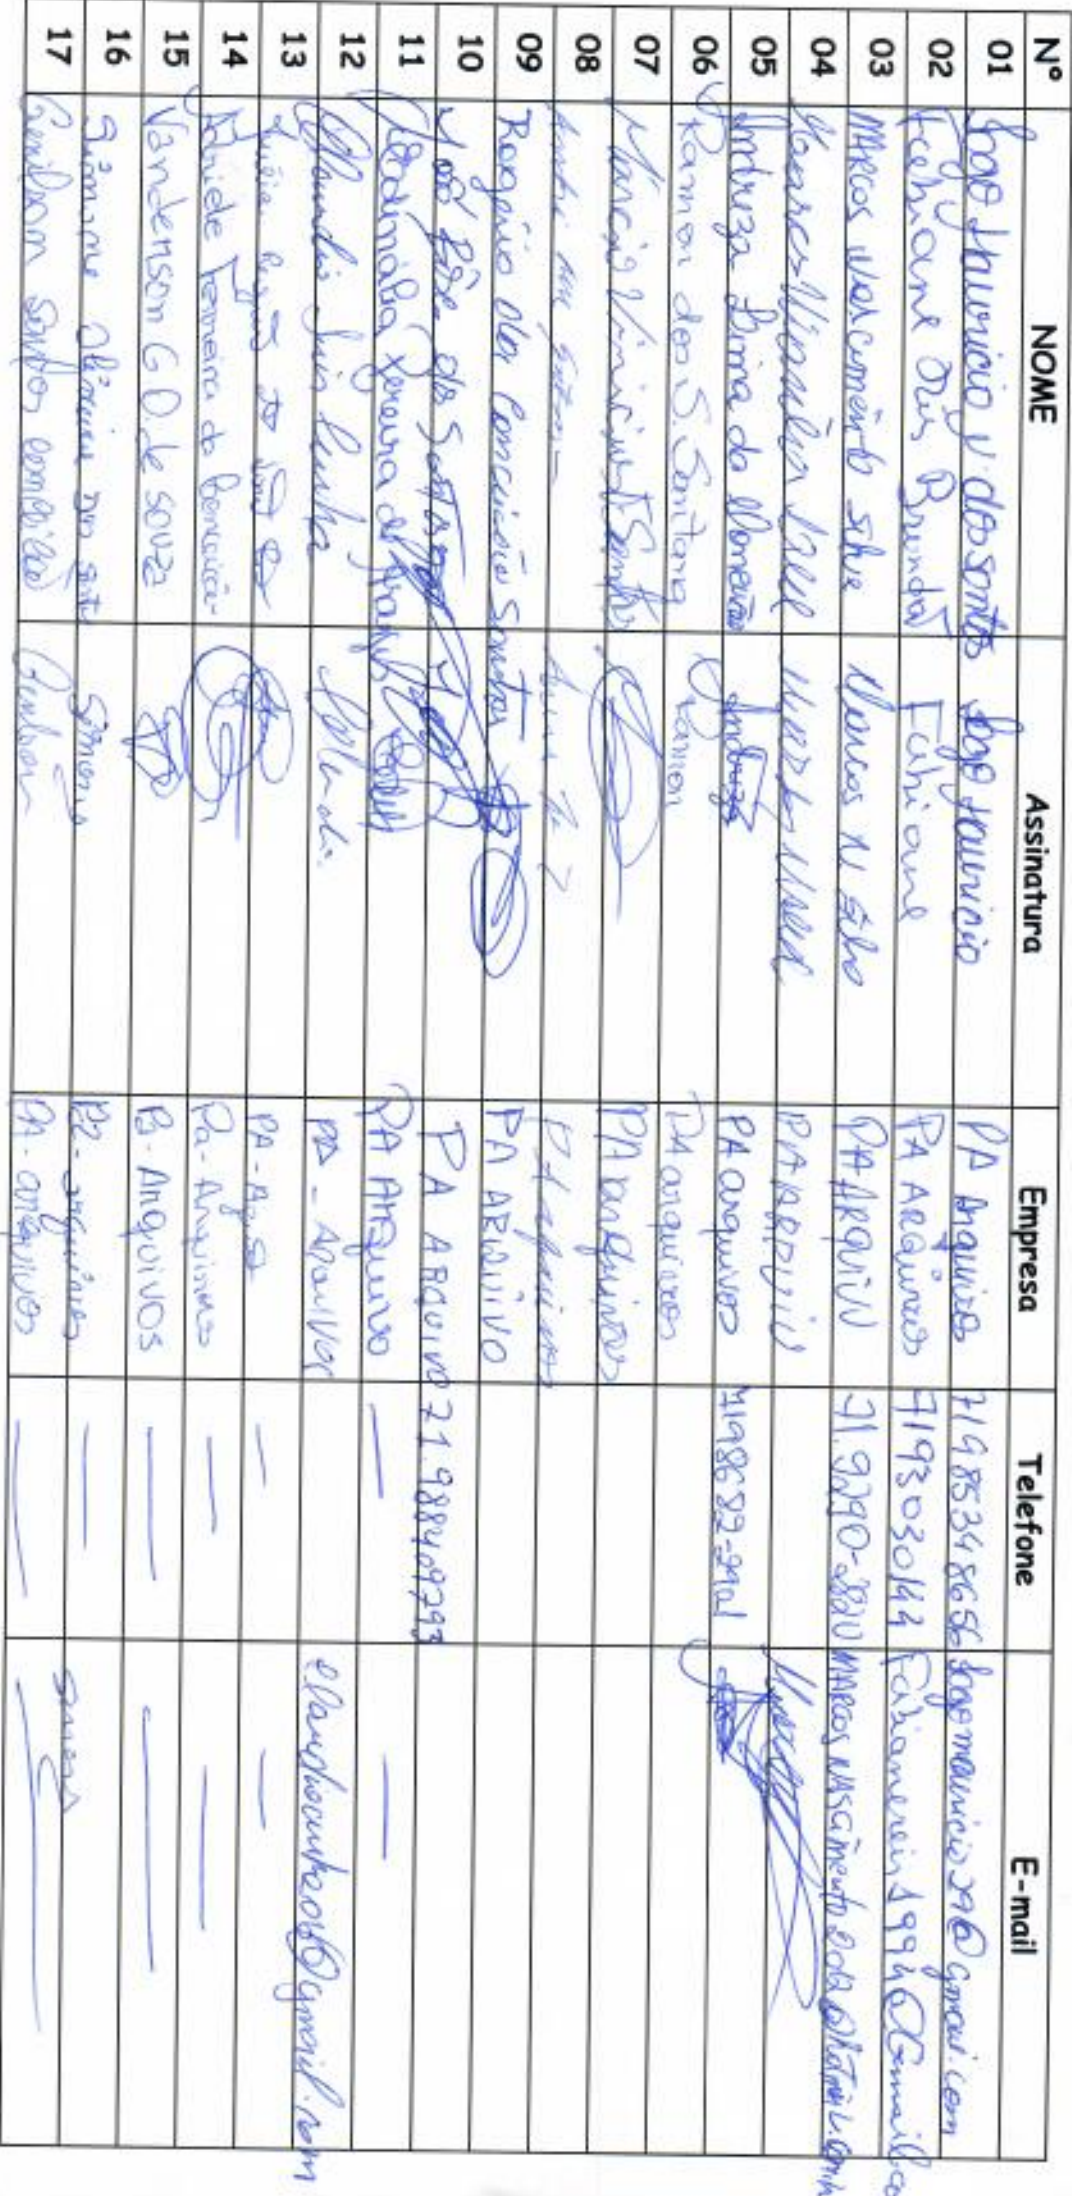 Nº NOME Assinatura Empresa Telefone E-mail
01 Iago Mauricio V. dos Santos Iago Mauricio PA Arquivos 71985348656 Iagomauricio29@gmail.com
02 Fabiane Reis Brandão Fabiane PA ARQuivos 7193030144 Fabianereis1994@Gmail.co
03 MARCOS NASCIMENTO Silva Marcos N Silva PA ARQUIVO 71.9290-2820 MARCOS NASCIMENTO2012@HOTMAIL.COM
04 PA ARQUIVO
05 Andreza Lima da Conceição Andreza PA arquivos 7198682-2901
06 Ramon dos S. Santana Ramon PA arquivos
07 Marcio Vinicius S Santos PA arquivos
08 PA arquivos
09 Rogério da Conceição Santos PA ARQUIVO
10 José dos Santos PA ARQUIVO 71.988409793
11 Pereira de PA ARQUIVO —
12 Claudio Luis Cunha PA - ARQUIVOS claudiocunha06@gmail.com
13 PA - — —
14 Ferreira da Pa - Arquivos — —
15 Vanderson G D. de Souza P - ARQUIVOS — —
16 Simone Simone arquivos —
17 Genilson Santos Conceição Genilson PA - arquivos — —